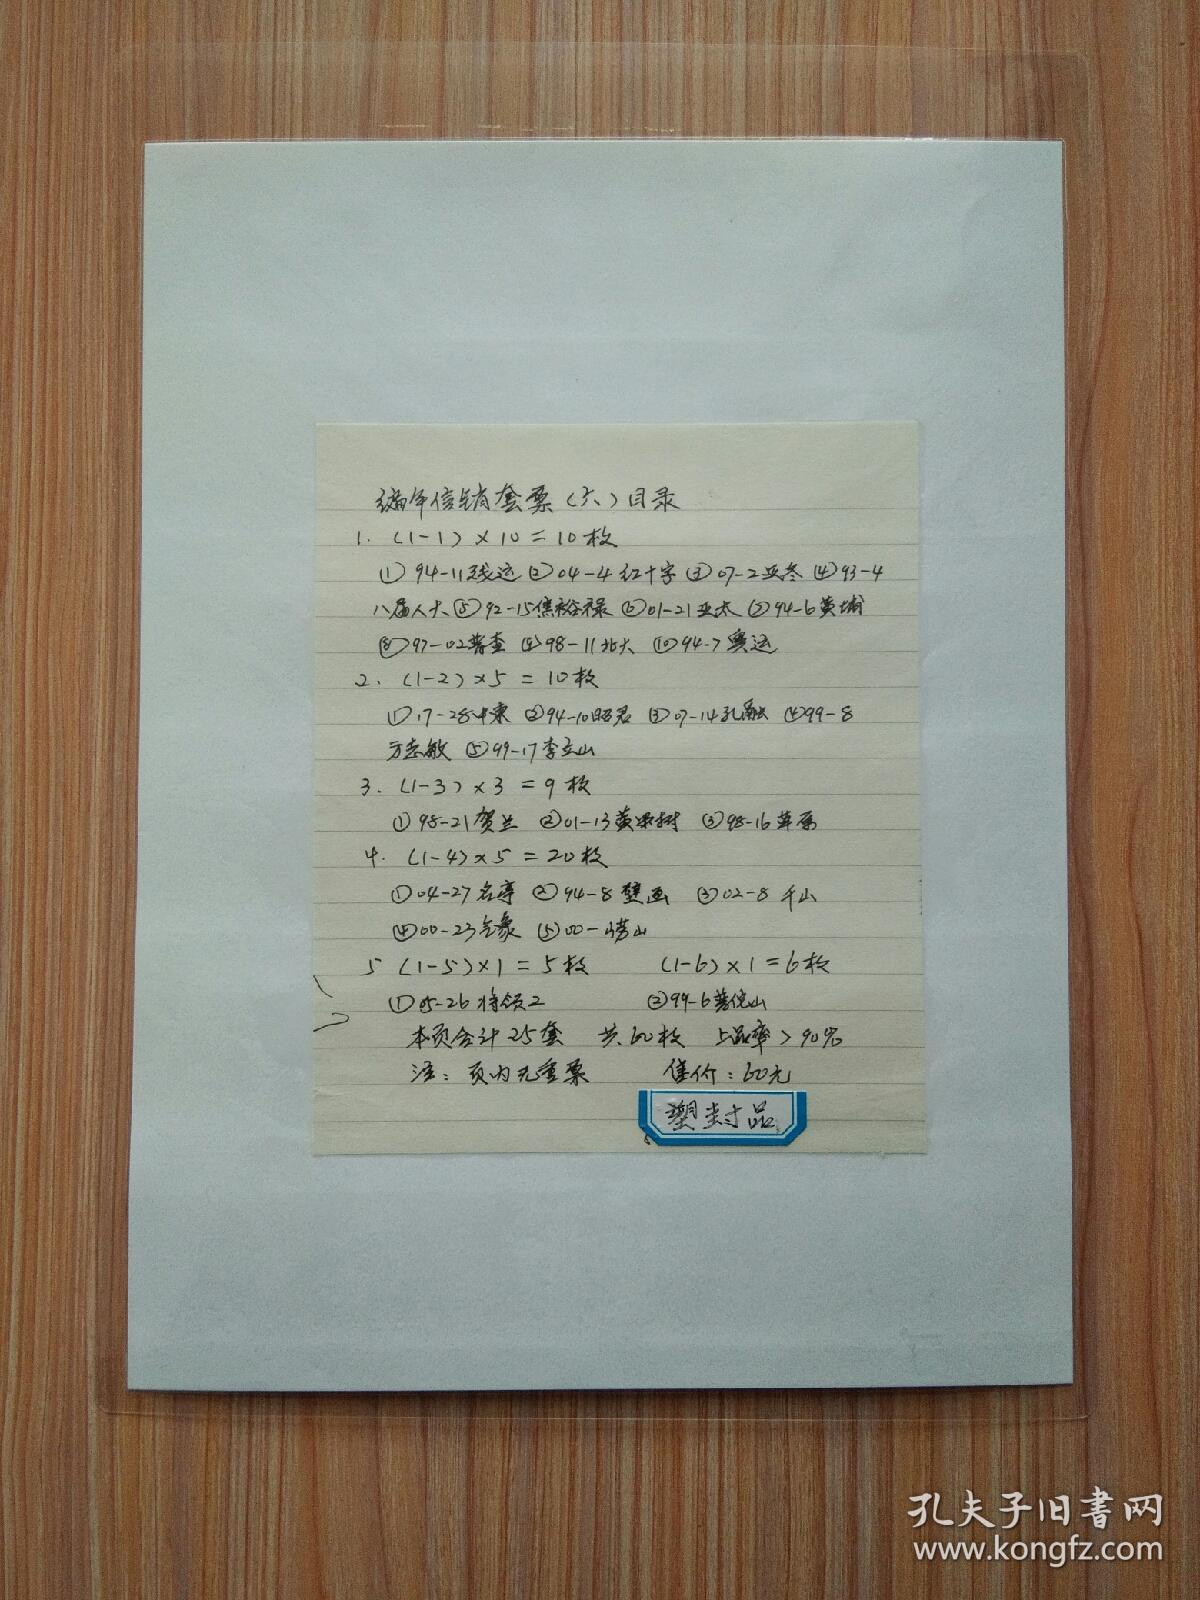 编年信销套票（六）目录
1. (1-1)×10=10枚
① 94-11残运 ② 04-4 红十字 ③ 07-2亚冬 ④ 93-4
八届人大 ⑤ 92-15焦裕禄 ⑥ 01-21亚太 ⑦ 94-6黄埔
⑧ 97-02普查 ⑨ 98-11北大 ⑩ 94-7奥运
2. (1-2)×5=10枚
① 17-28中柬 ② 94-10昭君 ③ 07-14孔融 ④ 99-8
方志敏 ⑤ 99-17李立山
3. (1-3)×3=9枚
① 98-21贺兰 ② 01-13黄果树 ③ 98-16草原
4. (1-4)×5=20枚
① 04-27名亭 ② 94-8壁画 ③ 02-8 千山
④ 00-23气象 ⑤ 00-崂山
5 (1-5)×1=5枚 (1-6)×1=6枚
① 05-26将领2 ② 99-6普陀山
本页合计25套 共60枚 上品率>90%
注：页内无重票 售价：60元
塑封品
孔夫子旧书网
www.kongfz.com